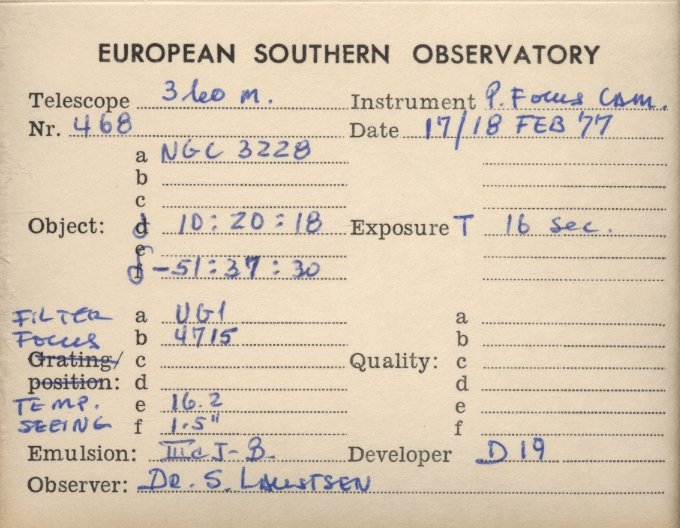 EUROPEAN SOUTHERN OBSERVATORY
Telescope 360 m. Instrument P. Focus CAM.
Nr. 468 Date 17/18 FEB 77
a NGC 3228
b
c
Object: d 10:20:18 Exposure T 16 sec.
e
f δ -51:37:30
FILTER a UG1 a
FOCUS b 4715 b
Grating/ c Quality: c
position: d d
TEMP. e 16.2 e
SEEING f 1.5" f
Emulsion: IIIaJ-B. Developer D 19
Observer: DR. S. LAUSTSEN